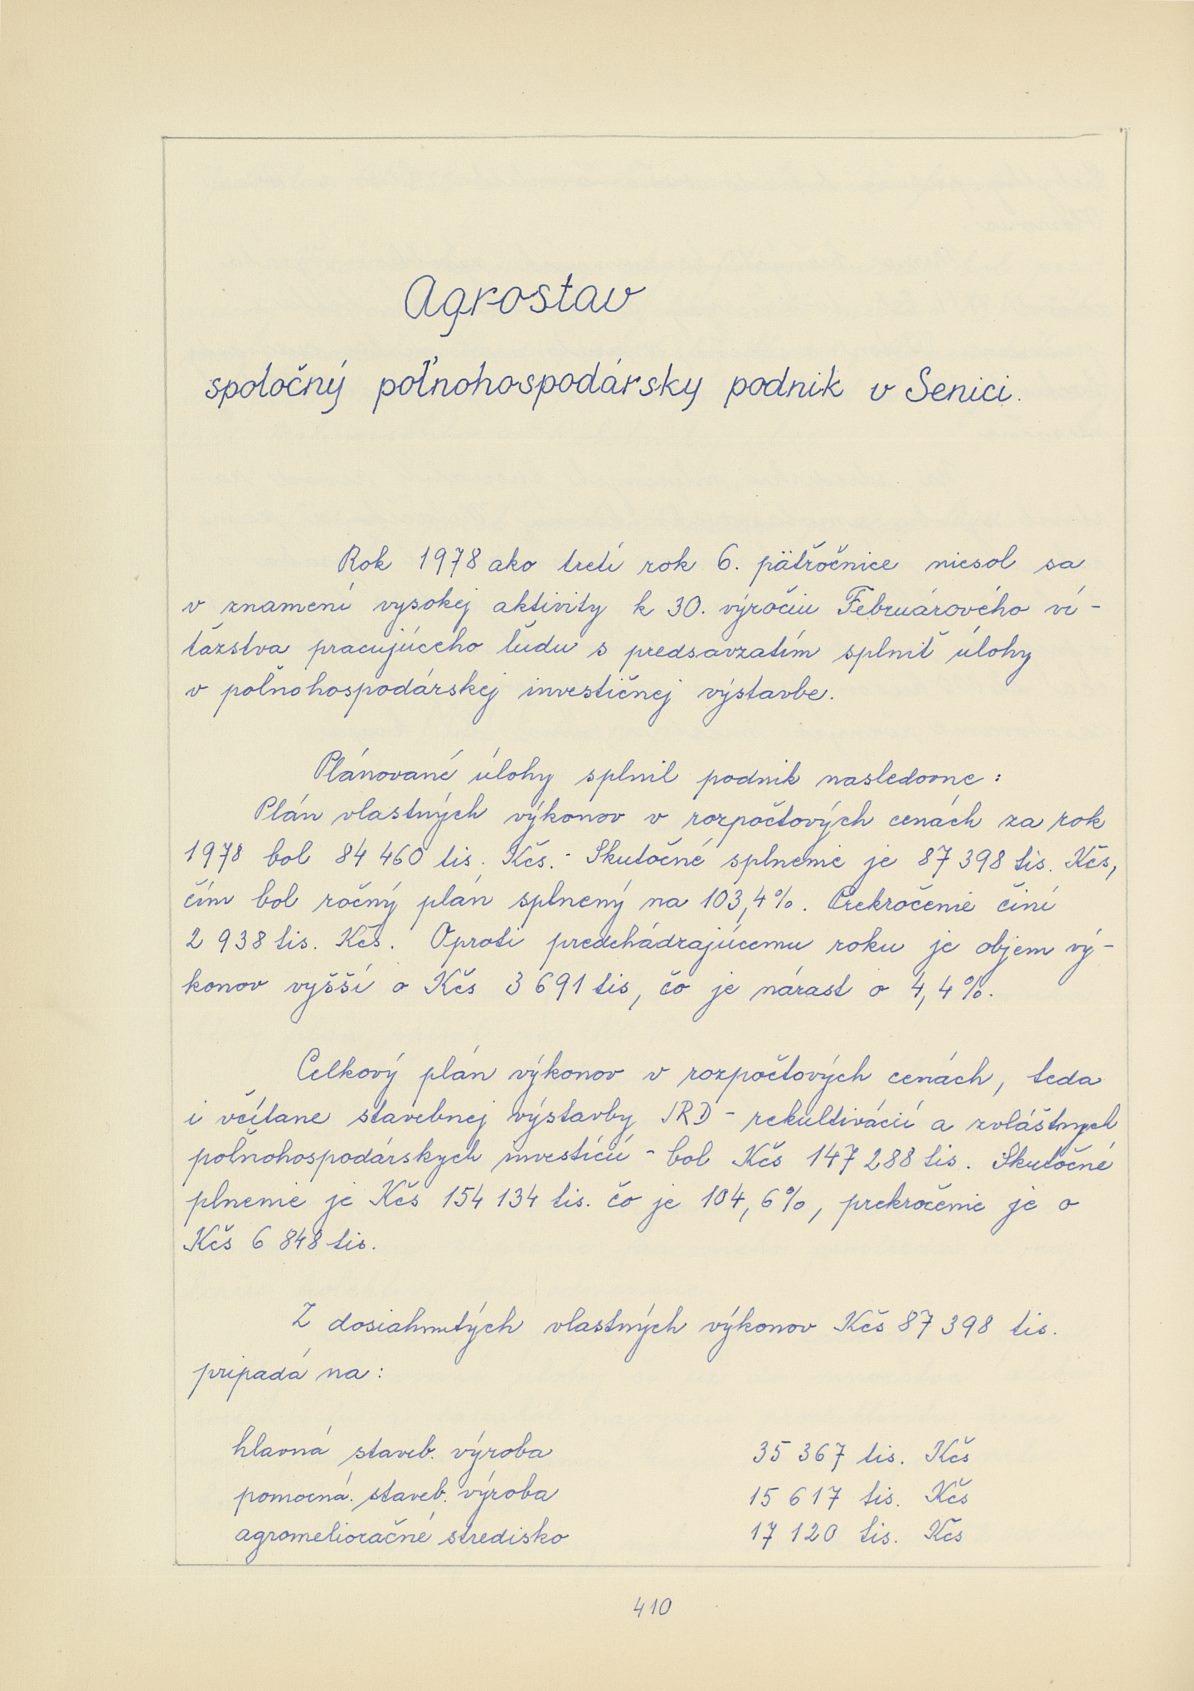 Agrostav
spoločný poľnohospodársky podnik v Senici.
Rok 1978 ako tretí rok 6. päťročnice niesol sa
v znamení vysokej aktivity k 30. výročiu Februárového ví-
ťazstva pracujúceho ľudu s predsavzatím splniť úlohy
v poľnohospodárskej investičnej výstavbe.
Plánované úlohy splnil podnik nasledovne:
Plán vlastných výkonov v rozpočtových cenách za rok
1978 bol 84 460 tis. Kčs.- Skutočné splnenie je 87 398 tis. Kčs,
čím bol ročný plán splnený na 103,4%. Prekročenie činí
2 938 tis. Kčs. Oproti predchádzajúcemu roku je objem vý-
konov vyšší o Kčs 3 691 tis, čo je nárast o 4,4%.
Celkový plán výkonov v rozpočtových cenách, teda
i včítane stavebnej výstavby IRD - rekultivácií a zvláštnych
poľnohospodárskych investícií - bol Kčs 147 288 tis. Skutočné
plnenie je Kčs 154 134 tis. čo je 104,6%, prekročenie je o
Kčs 6 848 tis.
Z dosiahnutých vlastných výkonov Kčs 87 398 tis.
pripadá na:
hlavná staveb. výroba 35 367 tis. Kčs
pomocná staveb. výroba 15 617 tis. Kčs
agromelioračné stredisko 17 120 tis. Kčs
410